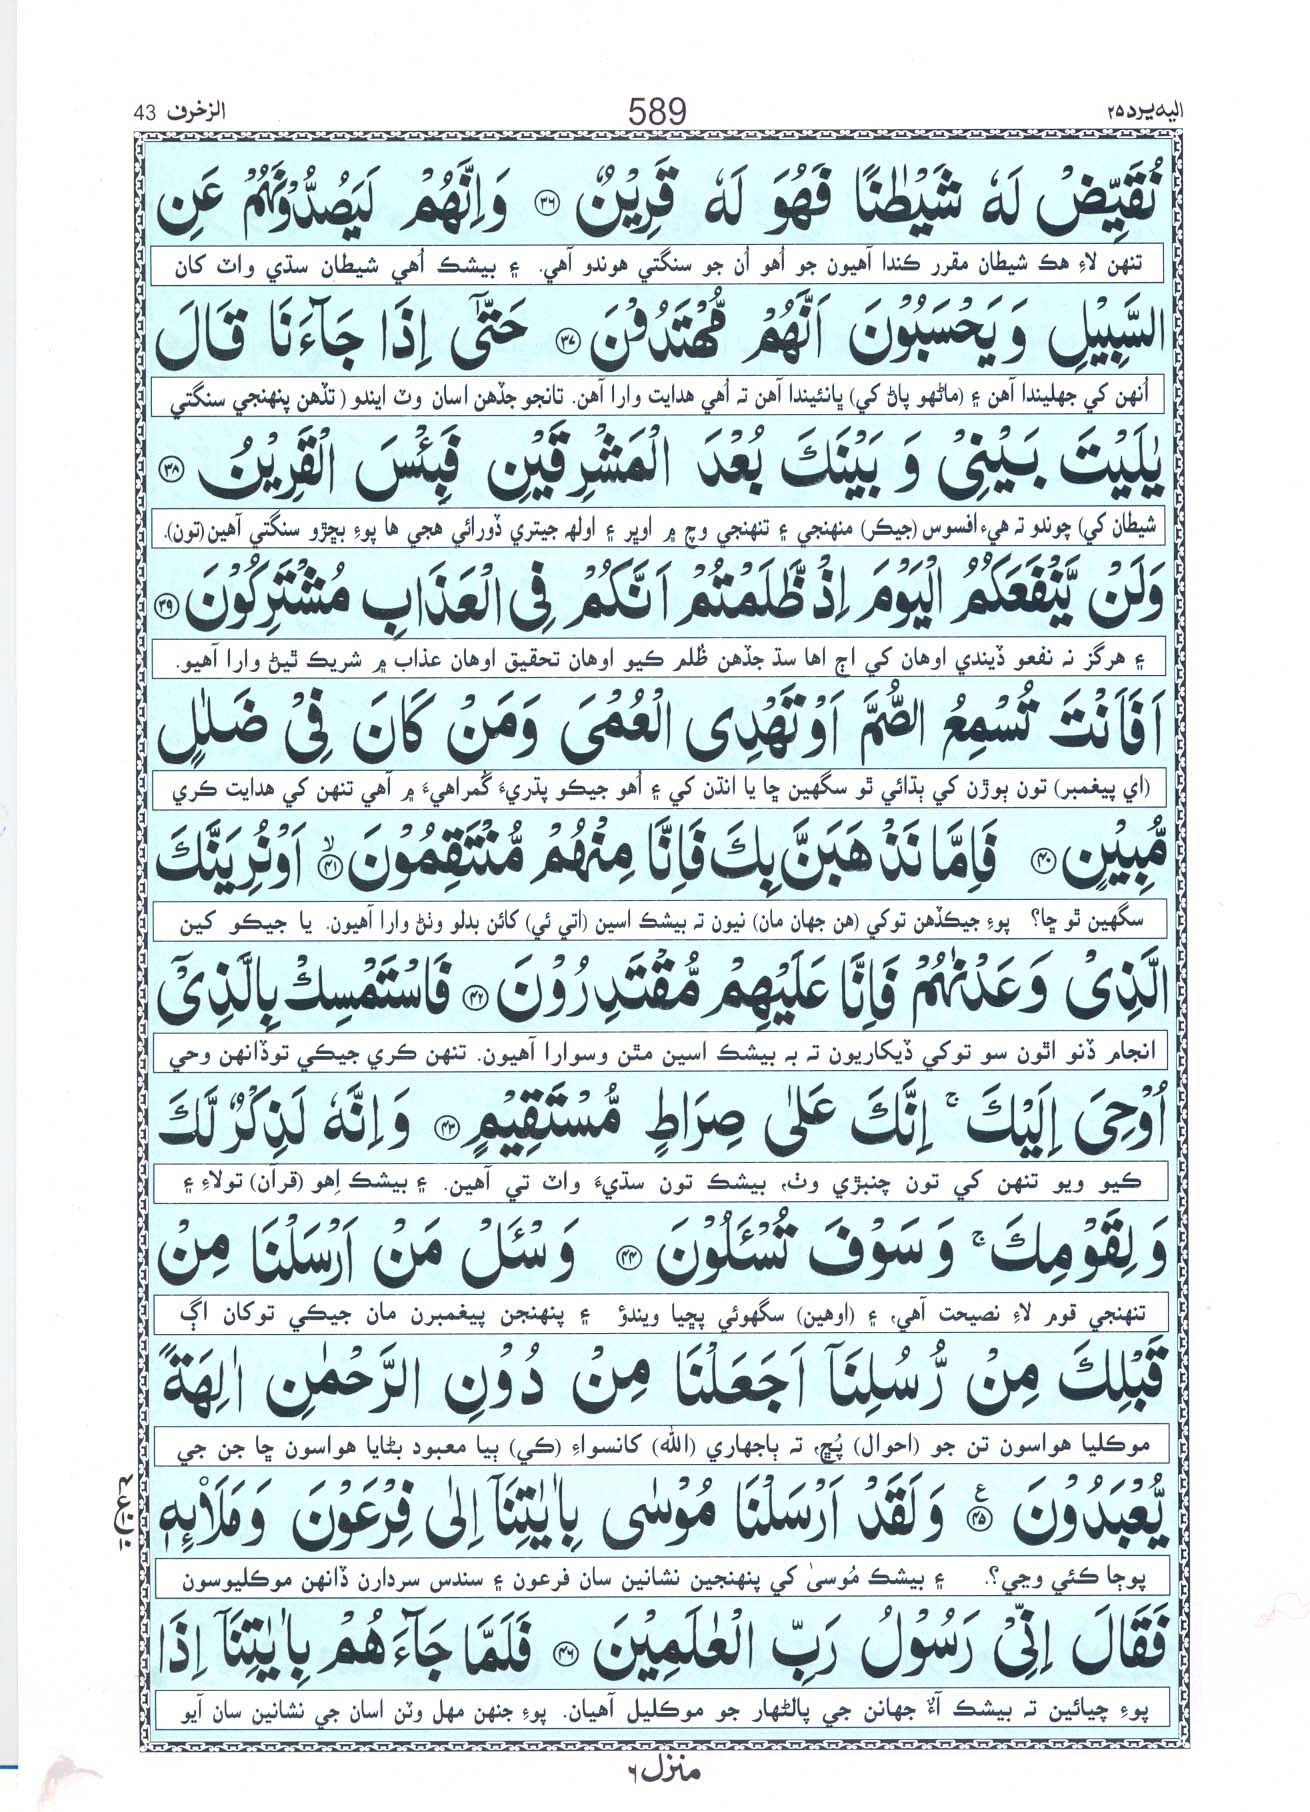 اليه يرد ۲۵
589
الزخرف 43
نُقَيِّضْ لَهٗ شَيْطٰنًا فَهُوَ لَهٗ قَرِيْنٌ ۳۶ وَاِنَّهُمْ لَيَصُدُّوْنَهُمْ عَنِ
تنهن لاءِ هڪ شيطان مقرر ڪندا آهيون جو اُهو اُن جو سنگتي هوندو آهي. ۽ بيشڪ اُهي شيطان سڌي واٽ کان
السَّبِيْلِ وَيَحْسَبُوْنَ اَنَّهُمْ مُّهْتَدُوْنَ ۳۷ حَتّٰٓى اِذَا جَآءَنَا قَالَ
اُنهن کي جهليندا آهن ۽ (ماڻهو پاڻ کي) ڀانئيندا آهن ته اُهي هدايت وارا آهن. تانجو جڏهن اسان وٽ ايندو (تڏهن پنهنجي سنگتي
يٰلَيْتَ بَيْنِيْ وَبَيْنَكَ بُعْدَ الْمَشْرِقَيْنِ فَبِئْسَ الْقَرِيْنُ ۳۸
شيطان کي) چوندو ته هيءِ افسوس (جيڪر) منهنجي ۽ تنهنجي وچ ۾ اوڀر ۽ اولهه جيتري ڏورائي هجي ها پوءِ بڇڙو سنگتي آهين(تون).
وَلَنْ يَّنْفَعَكُمُ الْيَوْمَ اِذْ ظَّلَمْتُمْ اَنَّكُمْ فِى الْعَذَابِ مُشْتَرِكُوْنَ ۳۹
۽ هرگز نه نفعو ڏيندي اوهان کي اڄ اها سڌ جڏهن ظُلم ڪيو اوهان تحقيق اوهان عذاب ۾ شريڪ ٿيڻ وارا آهيو.
اَفَاَنْتَ تُسْمِعُ الصُّمَّ اَوْ تَهْدِى الْعُمْىَ وَمَنْ كَانَ فِيْ ضَلٰلٍ
(اي پيغمبر) تون ٻوڙن کي ٻڌائي ٿو سگهين ڇا يا انڌن کي ۽ اُهو جيڪو پڌريءَ گُمراهيءَ ۾ آهي تنهن کي هدايت ڪري
مُّبِيْنٍ ۴۰ فَاِمَّا نَذْهَبَنَّ بِكَ فَاِنَّا مِنْهُمْ مُّنْتَقِمُوْنَ ۴۱ لا اَوْ نُرِيَنَّكَ
سگهين ٿو ڇا؟ پوءِ جيڪڏهن توکي (هن جهان مان) نيون ته بيشڪ اسين (اتي ئي) کائن بدلو وٺڻ وارا آهيون. يا جيڪو کين
الَّذِيْ وَعَدْنٰهُمْ فَاِنَّا عَلَيْهِمْ مُّقْتَدِرُوْنَ ۴۲ فَاسْتَمْسِكْ بِالَّذِيْٓ
انجام ڏنو اٿون سو توکي ڏيکاريون ته به بيشڪ اسين مٿن وسوارا آهيون. تنهن ڪري جيڪي توڏانهن وحي
اُوْحِيَ اِلَيْكَ ۚ اِنَّكَ عَلٰى صِرَاطٍ مُّسْتَقِيْمٍ ۴۳ وَاِنَّهٗ لَذِكْرٌ لَّكَ
ڪيو ويو تنهن کي تون چنبڙي وٺ، بيشڪ تون سڌيءَ واٽ تي آهين. ۽ بيشڪ اِهو (قرآن) تولاءِ ۽
وَلِقَوْمِكَ ۚ وَسَوْفَ تُسْـَٔلُوْنَ ۴۴ وَسْـَٔلْ مَنْ اَرْسَلْنَا مِنْ
تنهنجي قوم لاءِ نصيحت آهي، ۽ (اوهين) سگهوئي پڇيا ويندؤ ۽ پنهنجن پيغمبرن مان جيڪي توکان اڳ
قَبْلِكَ مِنْ رُّسُلِنَآ اَجَعَلْنَا مِنْ دُوْنِ الرَّحْمٰنِ اٰلِهَةً
موڪليا هواسون تن جو (احوال) پُڇ، ته ٻاجهاري (الله) کانسواءِ (ڪي) ٻيا معبود بڻايا هواسون ڇا جن جي
يُّعْبَدُوْنَ ۴۵ ع وَلَقَدْ اَرْسَلْنَا مُوْسٰى بِاٰيٰتِنَآ اِلٰى فِرْعَوْنَ وَمَلَا۟ئِهٖ
پوڄا ڪئي وڃي؟. ۽ بيشڪ مُوسىٰ کي پنهنجين نشانين سان فرعون ۽ سندس سردارن ڏانهن موڪليوسون
فَقَالَ اِنِّيْ رَسُوْلُ رَبِّ الْعٰلَمِيْنَ ۴۶ فَلَمَّا جَآءَهُمْ بِاٰيٰتِنَآ اِذَا
پوءِ چيائين ته بيشڪ آءٌ جهانن جي پالڻهار جو موڪليل آهيان. پوءِ جنهن مهل وٽن اسان جي نشانين سان آيو
منزل ۶